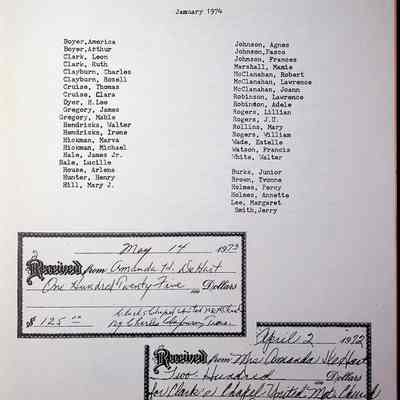 January 1974
Boyer,America
Boyer,Arthur
Clark, Leon
Clark, Ruth
Clayburn, Charles
Clayburn, Rozell
Cruise, Thomas
Cruise, Clara
Dyer, H.Lee
Gregory, James
Gregory, Mable
Hendricks, Walter
Hendricks, Irene
Hickman, Marva
Hickman, Michael
Hale, James Jr.
Hale, Lucille
House, Arlena
Hunter, Henry
Hill, Mary J.
Johnson, Agnes
Johnson,Fasco
Johnson, Frances
Marshall, Mamie
McClanahan, Robert
McClanahan, Lawrence
McClanahan, Joann
Robinson, Lawrence
Robinson, Adele
Rogers, Lillian
Rogers, J.U.
Rollins, Mary
Rogers, William
Wade, Estelle
Watson, Francis
White, Walter
Burks, Junior
Brown, Yvonne
Holmes, Percy
Holmes, Annette
Lee, Margaret
Smith,Jerry
May 14 1973
Received from Amanda H. DeHart
One Hundred Twenty Five Dollars
Clark's Chapel United
$ 125.00 By Charles Clayburn Treas.
April 2 1972
Received from Mrs Amanda DeHart
Two Hundred Dollars
for Clark's Chapel United Met. Church